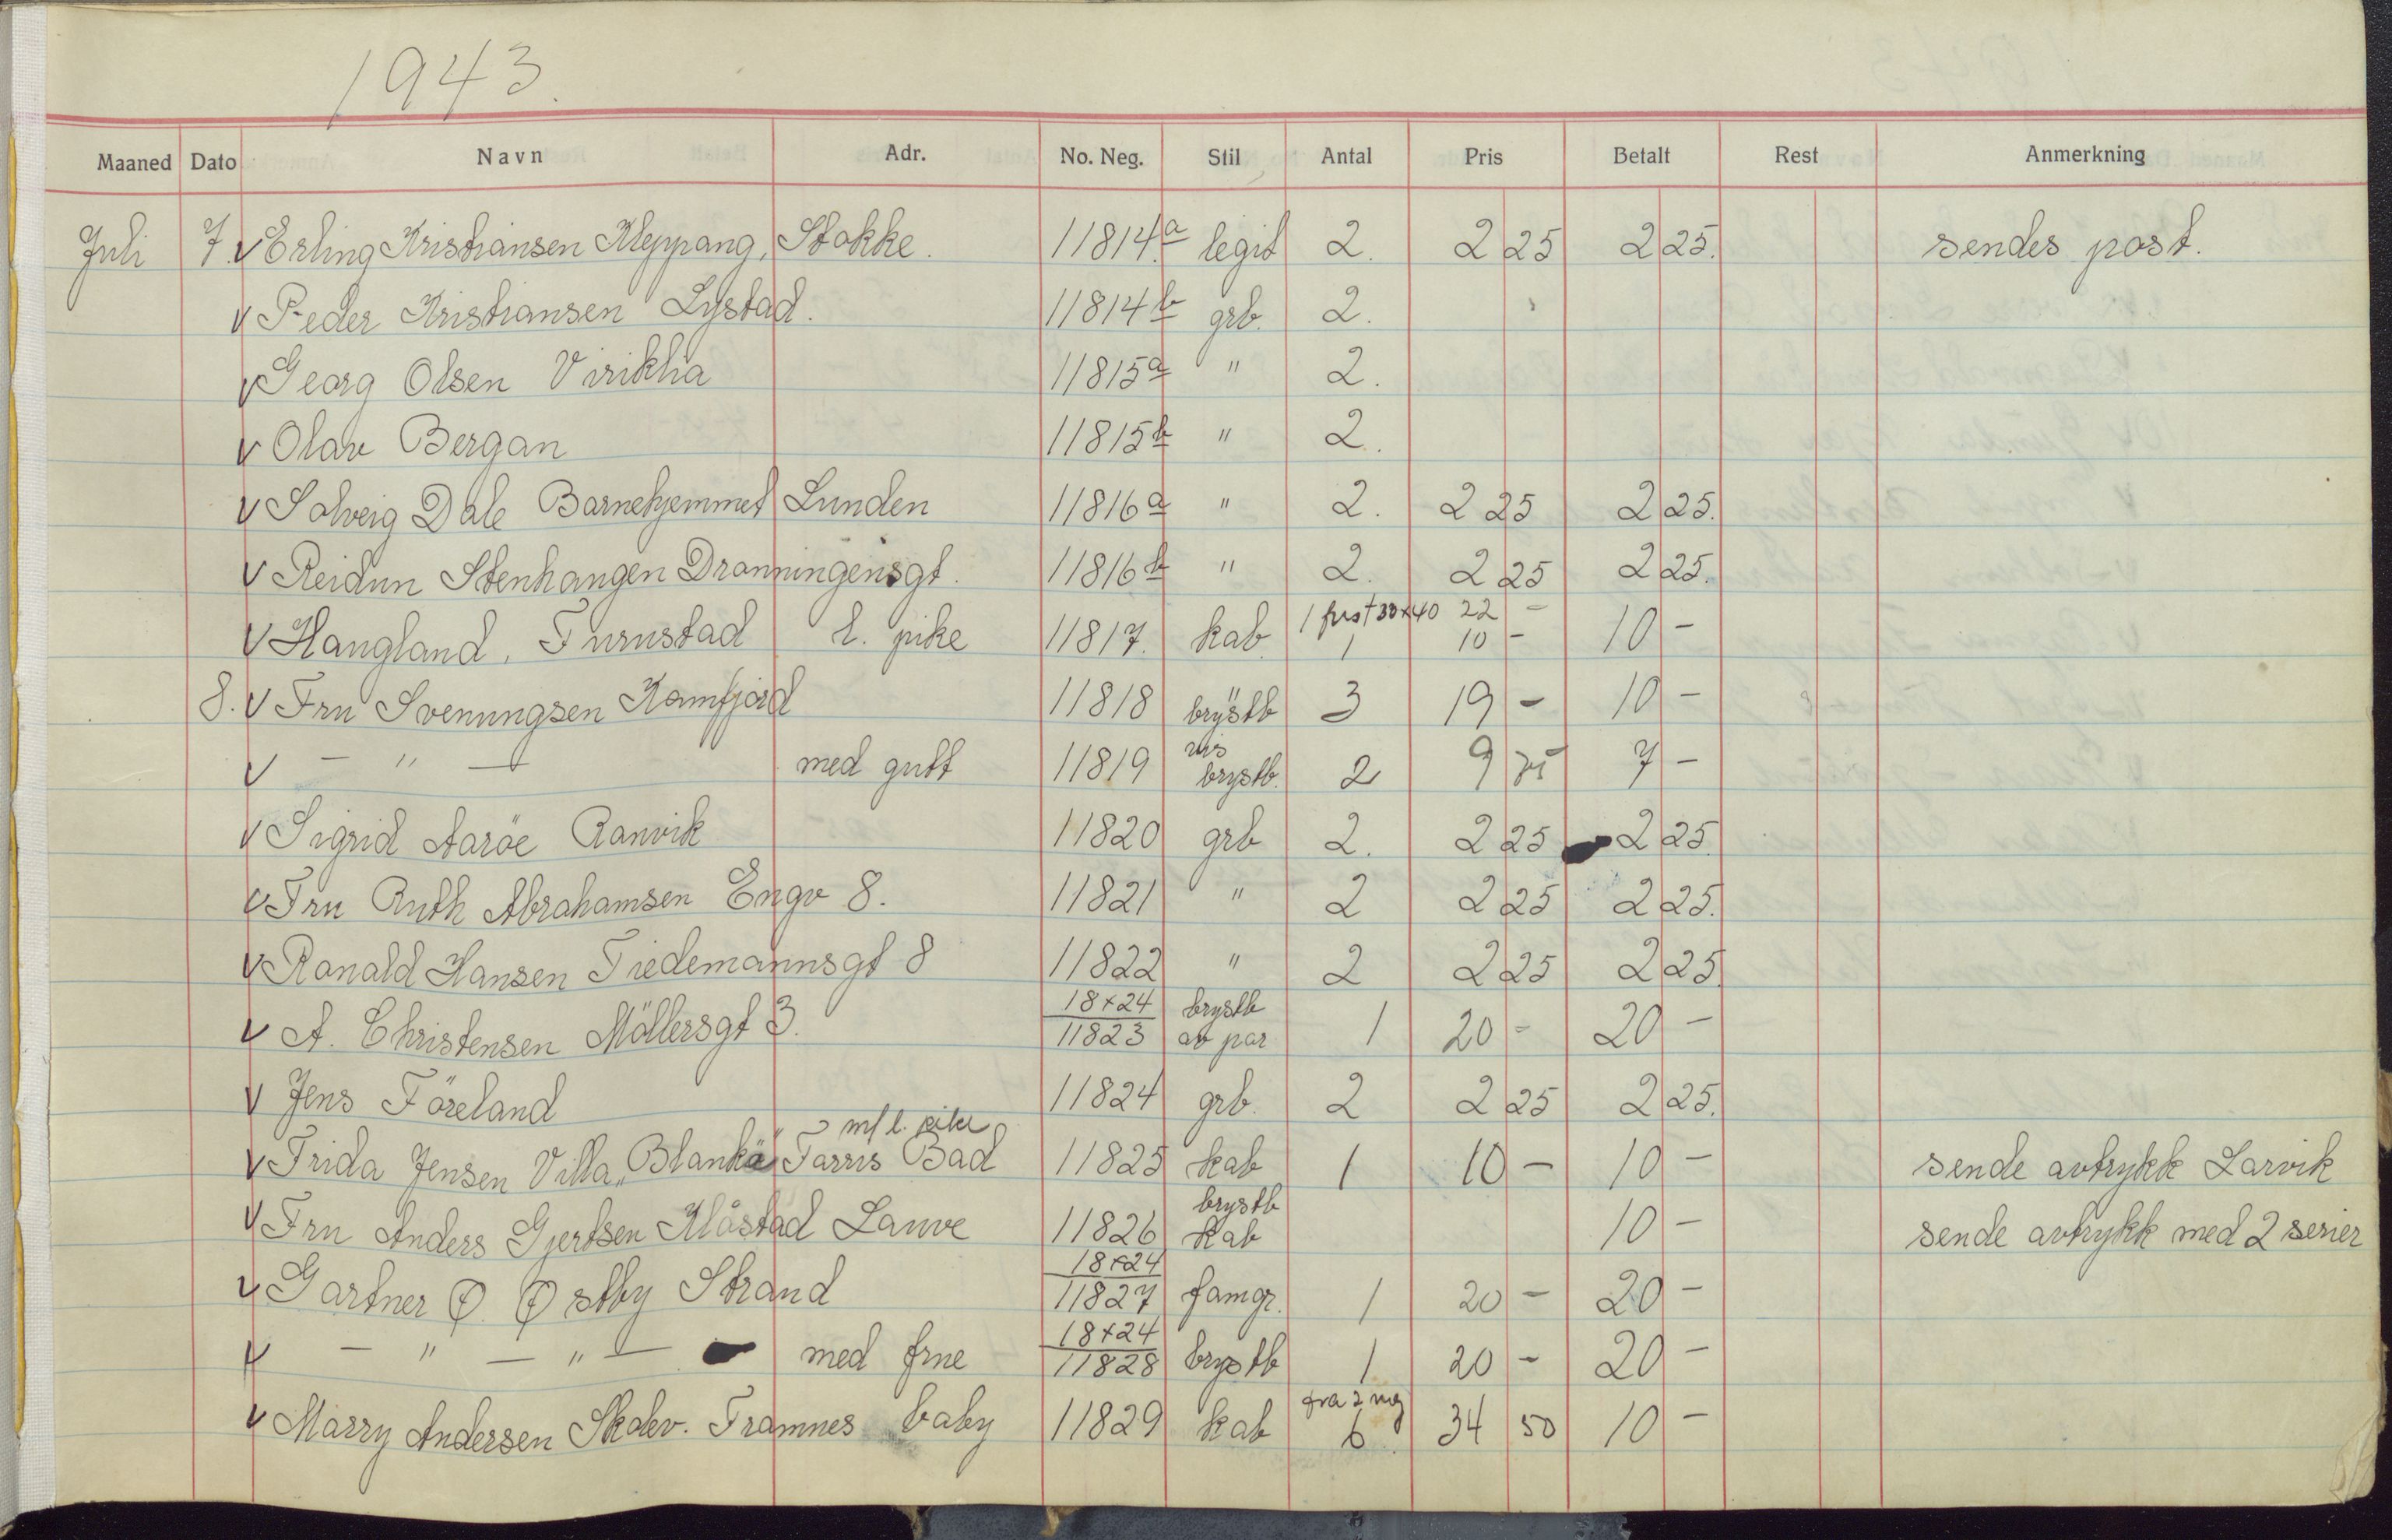 1943.
Maaned Dato Navn Adr. No. Neg. Stil Antal Pris Betalt Rest Anmerkning
Juli 7. v Erling Kristiansen Kleppang, Stokke. 11814.a legit 2. 2 25 2 25. sendes post.
v Peder Kristiansen Lystad. 11814 b grb. 2.
v Georg Olsen Viriklia 11815 a " 2.
v Olav Bergan 11815 b " 2.
v Solveig Dale Barnehjemmet Lunden 11816 a " 2. 2 25 2 25.
v Reidun Stenhaugen Dronningensgt. 11816 b " 2. 2 25 2 25.
v Haugland, Furustad l. pike 11817. kab. 1 30x40 22 – 1 10 – 10 –
8. v Fru Svenungsen Kamfjord 11818 brystb 3 19 – 10 –
v – " – med gutt 11819 vis brystb. 2 9 75 7 –
v Sigrid Aaröe Ranvik 11820 grb 2. 2 25 2 25.
v Fru Ruth Abrahamsen Engv 8. 11821 " 2 2 25 2 25.
v Ronald Hansen Tiedemannsgt 8 11822 " 2 2 25 2 25.
v A. Christensen Möllersgt 3. 18x24 11823 brystb av par 1 20 – 20 –
v Jens Föreland 11824 grb. 2 2 25 2 25.
m/ l. pike
v Frida Jensen Villa „Blanka" Farris Bad 11825 kab 1 10 – 10 – sende avtrykk Larvik
v Fru Anders Gjertsen Klåstad Lauve 11826 brystb kab 10 – sende avtrykk med 2 serier
v Gartner Ø. Østby Strand 18x24 11827 famgr. 1 20 – 20 –
v – " – " – med frue 18x24 11828 brystb 1 20 – 20 –
v Marry Andersen Skolev. Framnes baby 11829 kab fra 2 neg 6 34 50 10 –